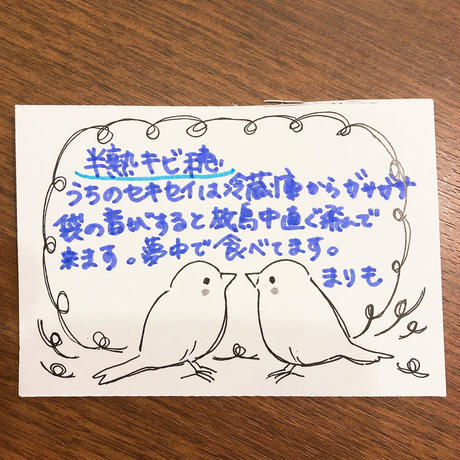 半熟キビ穂
うちのセキセイは冷蔵庫からガサガサ
袋の音がすると放鳥中直ぐ飛んで
来ます。夢中で食べてます。
まりも